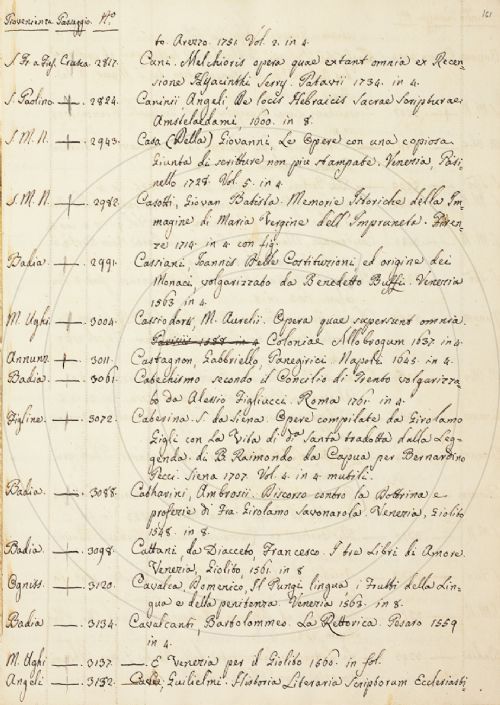 Provenienza Passaggio. Nº.
161
to. Arezzo. 1751. Vol. 2. in 4.
2817. Cani. Melchioris opera quae extant omnia ex Recen-
sione Hyacinthi Serry. Patavii 1734. in 4.
S. Paolino. 2824. Caninii, Angeli De locis Hebraicis Sacrae Scripturae.
Amstelaedami, 1600. in 8.
S. M. N. 2943. Casa (Della) Giovanni, Le Opere con una copiosa
Giunta di scritture non più stampate. Venezia, Pasi-
nello 1728. Vol. 5. in 4.
S. M. N. 2982. Casotti, Giovan Batista. Memorie Istoriche della Im-
magine di Maria Vergine dell'Impruneta. Firen-
ze 1714. in 4. con fig.
Badia. 2991. Cassiani, Ioannis. Delle Costituzioni, ed origine dei
Monaci, volgarizzato da Benedetto Buffi. Venezia
1563. in 4.
M. Ughi 3004. Cassiodori, M. Aurelii. Opera quae supersunt omnia.
Parisiis 1588. in 4. Coloniae Allobrogum 1637. in 4.
Annunz. 3011. Castagnori, Gabbriello, Panegirici. Napoli. 1645. in 4.
Badia 3061. Catechismo secondo il Concilio di Trento volgarizza-
to da Alessio Figliucci. Roma 1761. in 4.
Figline. 3072. Caterina. S. da Siena. Opere compilate da Girolamo
Gigli con la Vita di dta. Santa tradotta dalla Leg-
genda di B. Raimondo da Capua per Bernardino
Pecci. Siena 1707. Vol. 4. in 4. mutili.
Badia 3088. Catharini, Ambrosii. Discorso contro la Dottrina e
profezie di Fra. Girolamo Savonarola. Venezia, Giolito
1548. in 8.
Badia. 3098. Cattani, da Diacceto, Francesco. I tre Libri di Amore.
Venezia, Giolito, 1561. in 8
Ogniss. 3120. Cavalca, Domenico, Il Pungi lingua, i Frutti della Lin-
gua e della penitenza. Venezia 1563. in 8.
Badia 3134. Cavalcanti, Bartolommeo. La Rettorica. Pesaro 1559
in 4.
M. Ughi 3137. E Venezia per il Giolito 1560. in fol.
Angeli 3152. Cave, Guilielmi. Historia Literaria Scriptorum Ecclesiasti-